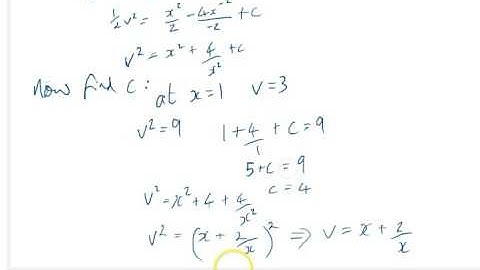 ½v² = x²/2 - 4x⁻²/-2 + c
v² = x² + 4/x² + c
Now find C: at x=1 v=3
v²=9 1+4/1 + c = 9
5+c = 9
c = 4
v² = x²+4+4/x²
v² = (x + 2/x)² ⇒ v = x + 2/x